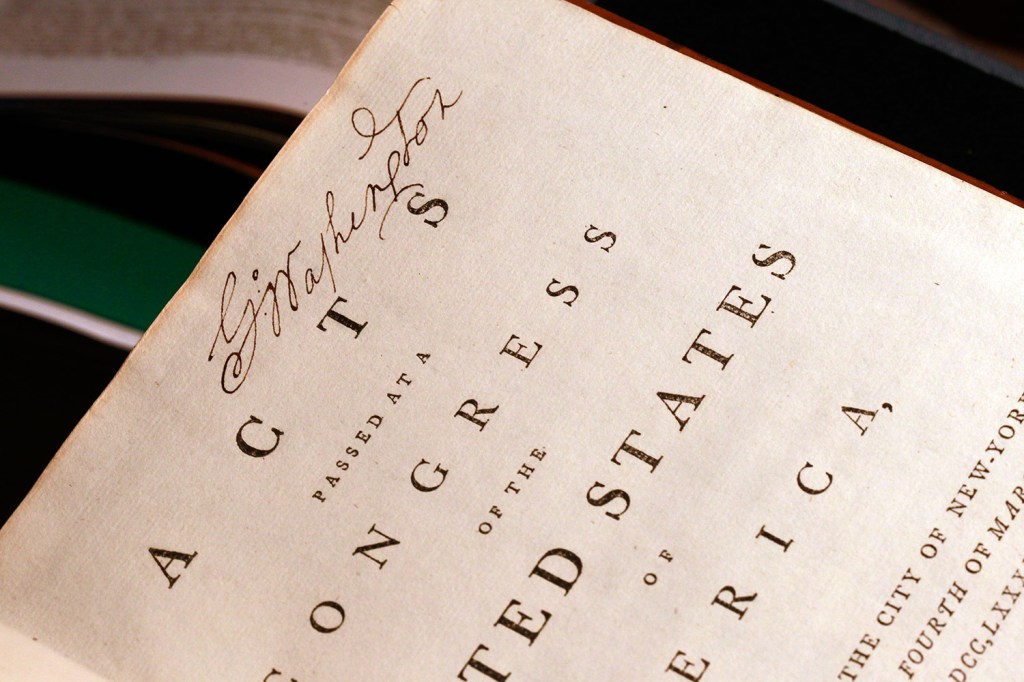 G: Washington
ACTS
PASSED AT A
CONGRESS
OF THE
TED STATES
OF
ERICA,
THE CITY OF NEW-YORK
FOURTH OF MAR
DCC,LXXX